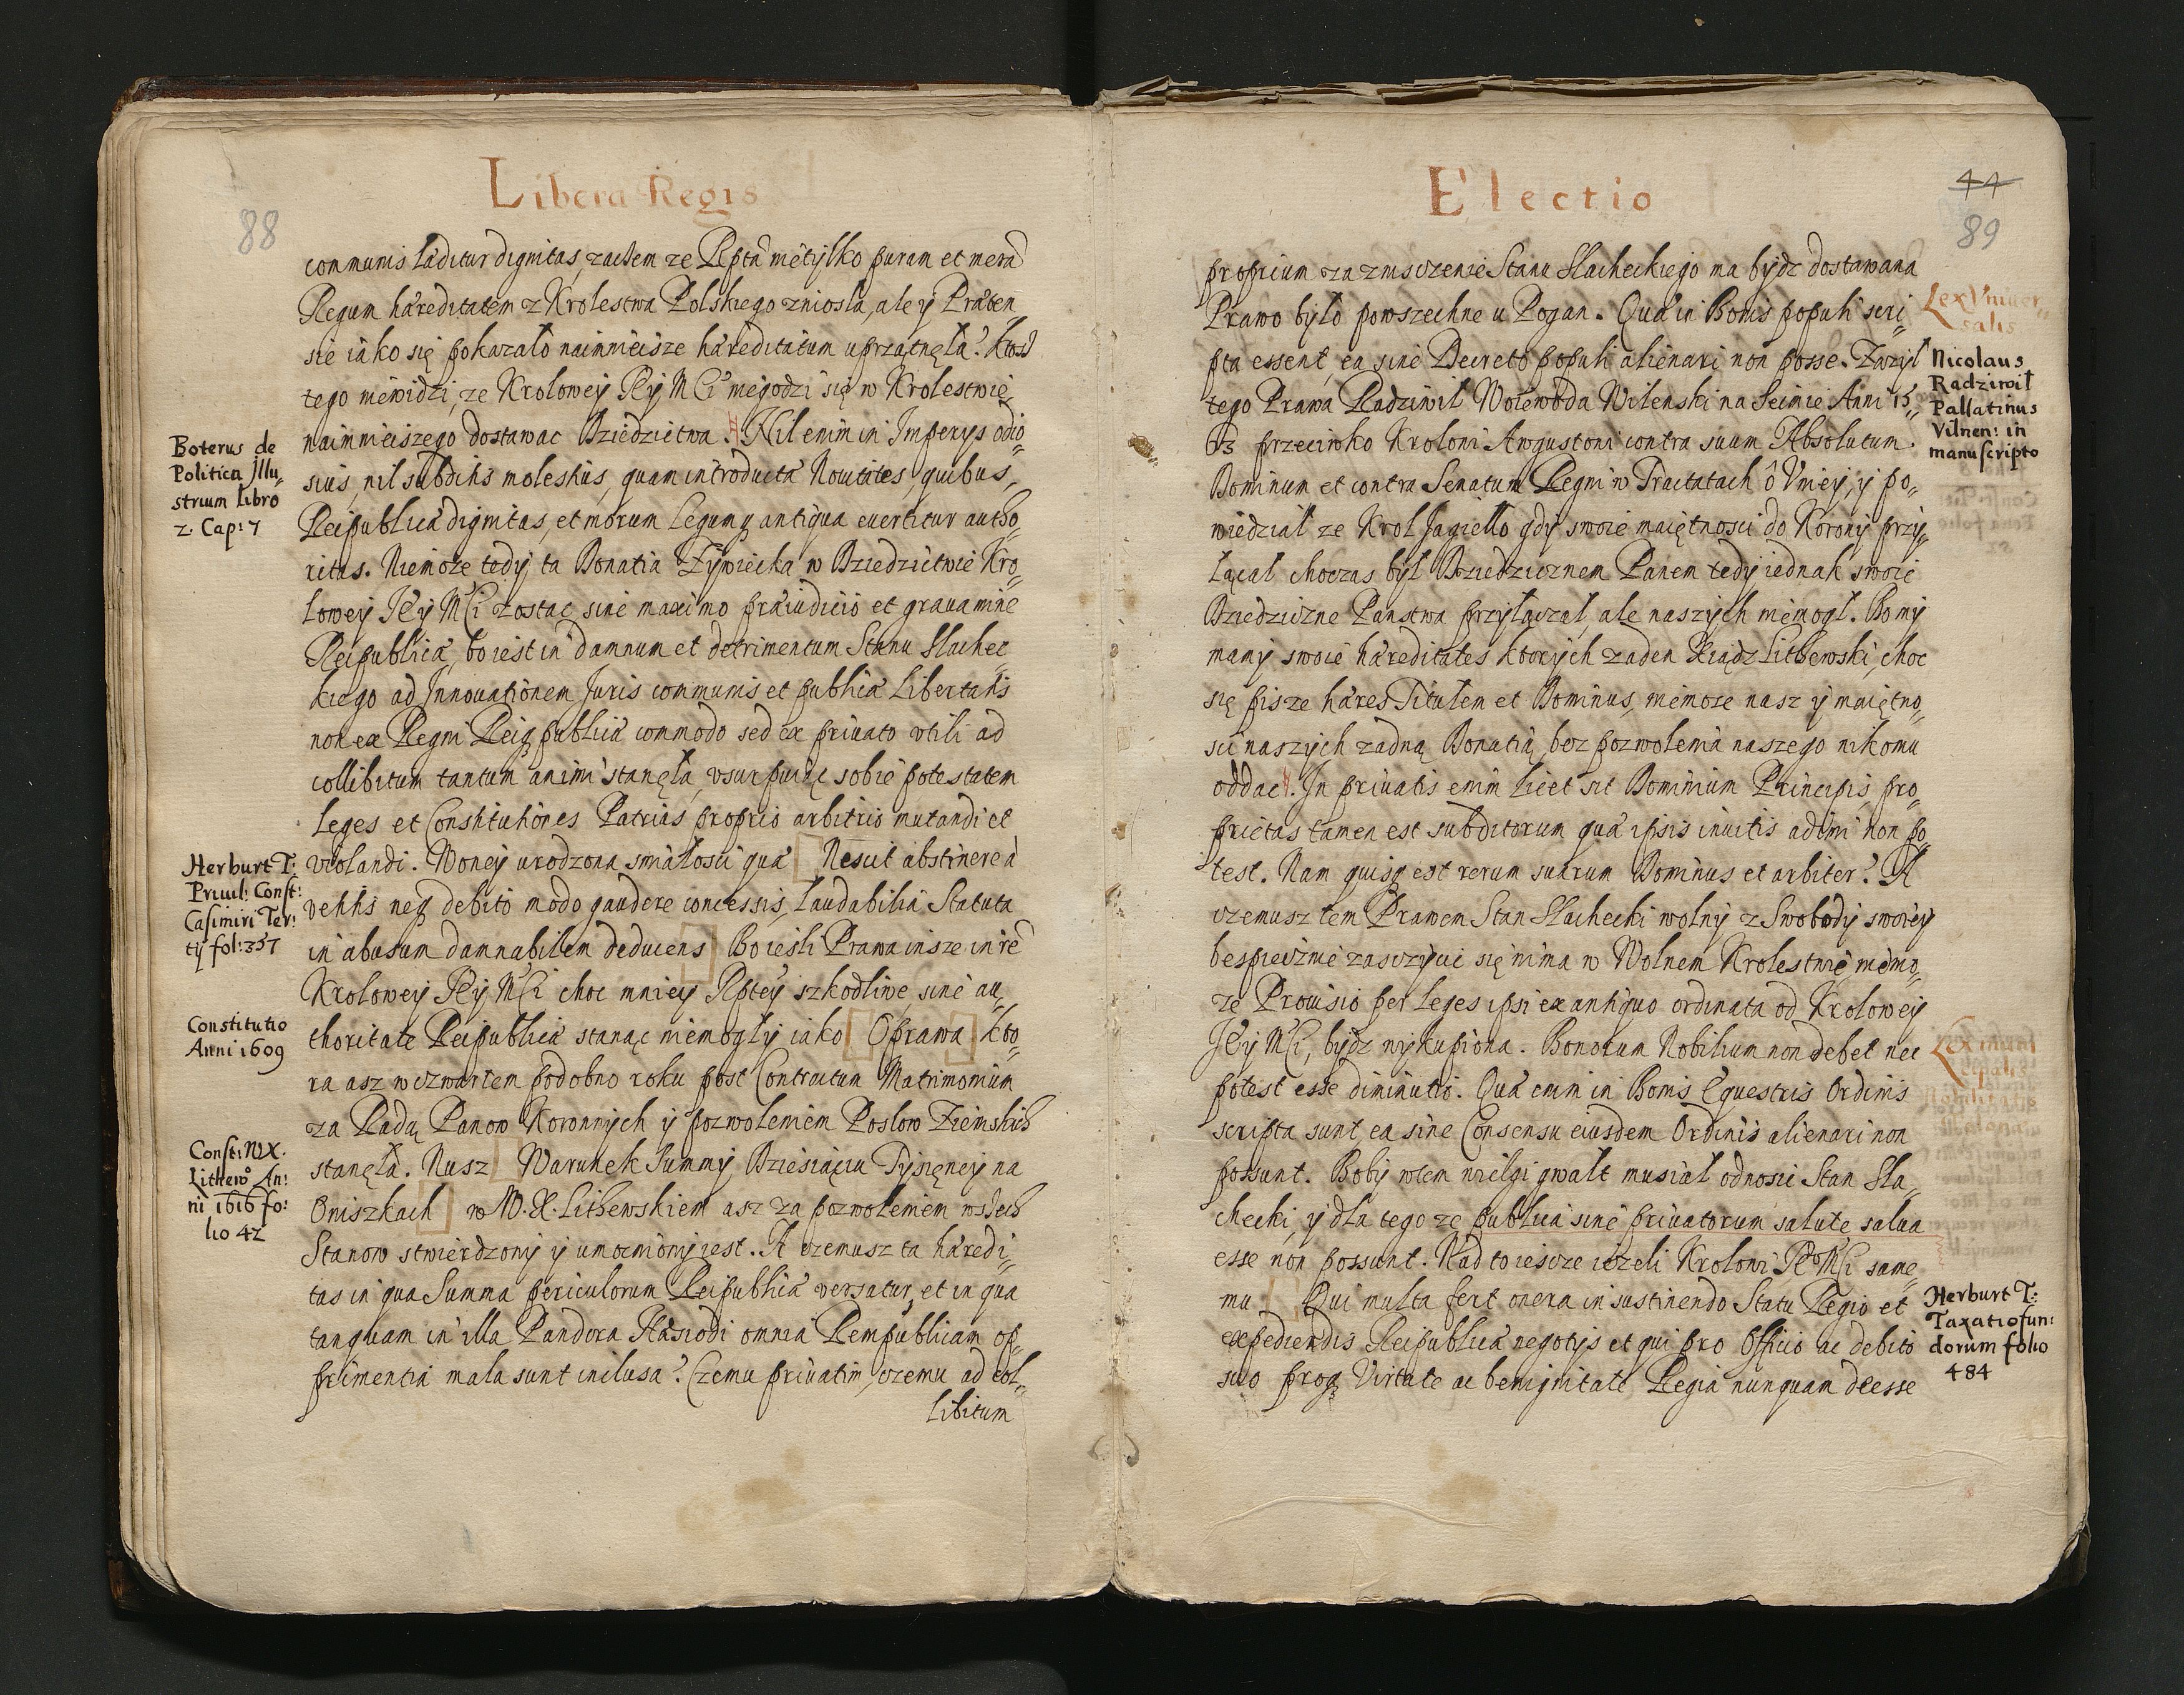 Libera Regis
88
communis læditur dignitas, zaczem ze Rptā nietylko puram et merā
Regum hæreditatem z Krolestwa Polskiego zniosla, ale y Præten
sie iako się pokazało naimnieisze hæreditatum uprzątnęla? ktosz
tego niewidzi, ze Krolowey JEy MCi niegodzi się w Krolestwie
naimnieiszego dostawac Dziedzictwa. Nil enim in Imperys odio„
sius, nil subditis molestius, quam introductæ Nouitates, quibus,
Reipublicæ dignitas, et morum Legumq antiqua euertitur autho„
ritas. Niemoze tedy ta Donatia Zywiecka w Dziedzictwie Kro„
lowey JEy MCi zostac sine maximo præiudicio et grauamine
Reipublicæ, bo iest in damnum et detrimentum Stanu Slachec
kiego ad Innouationem Juris communis et publicæ Libertatis
non ex Regni Reiq publicæ commodo sed ex priuato vtili ad
collibitum tantum animi stanęła, vsurpuiąc sobie potestatem
leges et Constitutiones Patrias proprio arbitrio mutandi et
violandi. Woney urodzona smiałosci quæ Nescit abstinere à
vetitis neq debito modo gaudere concessis, laudabilia Statuta
in abusum damnabilem deducens Bo iesli Prawa insze in rē
Krolowey JEy MCi choc mniey Rptey szkodliwe sine au„
thoritate Reipublicæ stanąc niemogły iako Oprawa kto„
ra asz w czwartem podobno roku post Contractum Matrimonium
za Radą Panow Koronnych y pozwoleniem Poslow Ziemskich
stanęła. Nusz Warunek Summy Dziesiąciu Tysięney na
Oniszkach w W. X. Lithewskiem asz za pozwoleniem wszech
Stanow stwierdzony y umocniony iest. A czemusz ta hæredi„
tas in qua Summa periculorum Reipublicæ versatur, et in qua
tanquam in illa Pandora Hæsiodi omnia Rempublicam op„
primentia mala sunt inclusa? Czemu priuatim, czemu ad col„
libitum
Boterus de
Politica Jllu„
strium libro
2. Cap: 7
Herburt T:
Priuil: Const:
Casimiri Ter:
ty fol: 357
Constitutio
Anni 1609
Const: WX.
Lithewo An:
ni 1616 fo:
lio 42
Electio
44
89
proprium za zniszczenie Stanu Slacheckiego ma bydz dostawana
Prawo bylo powszechne u Pogan. Quæ in Bonis populi scri„
pta essent, ea sine Decreto populi alienari non posse. Zwzyl
tego Prawa Radziwil Woiewoda Wilenski na Seimie Anni 15„
63 przeciwko Krolowi Awgustowi contra suum Absolutum
Dominum et contra Senatum Regni w Tractatach ô Vniey, y po„
wiedzial ze Krol Jagiello gdy swoie maiętnosci do Korony przy„
łącał choczas był Dziedzicznem Panem tedy iednak swoie
Dziedziczne Panstwa przyłączal ale naszych niemogl. Bo my
mamy swoie hæreditates ktorych zaden Xiądz Lithewski, choc
się pisze hæres Titulem et Dominus, niemoze nasz y maiętno„
sci naszych zadną Donatią bez pozwolenia naszego nikomu
oddac. In priuatis enim licet sit Dominium Principis, pro„
prietas tamen est subditorum quæ ipsis inuitis adimi non po„
test. Nam quisq est rerum suarum Dominus et arbiter? A
czemusz tem Prawem Stan Slachecki wolny z Swobody swoiey
bespiecznie zaszczycic się nima w Wolnem Krolestwie niemo„
ze Prouisio per leges ipsi ex antiquo ordinata od Krolowey
JEy MCi, bydz wykupiona. Bonorum Nobilium non debet nec
potest esse diminutio. Quæ enim in Bonis Equestris Ordinis
scripta sunt, ea sine Consensu eiusdem Ordinis alienari non
possunt. Boby wtem wielgi gwalt musial odnosic Stan Sla„
checki, y dla tego ze publica sine priuatorum salute salua
esse non possunt. Nad to iescze iezeli Krolowi JEo MCi same„
mu Qui multa fert onera in sustinendo Statu Regio et
expediendis Reipublicæ negotys et qui pro Officio ac debito
suo proq Virtute ac benignitate Regia nunquam deesse
Lex Vniuer„
salis
Nicolaus
Radziwil
Pallatinus
Vilnen: in
manuscripto
Lex muni
cipalis
Herburt T:
Taxatio fun:
dorum folio
484